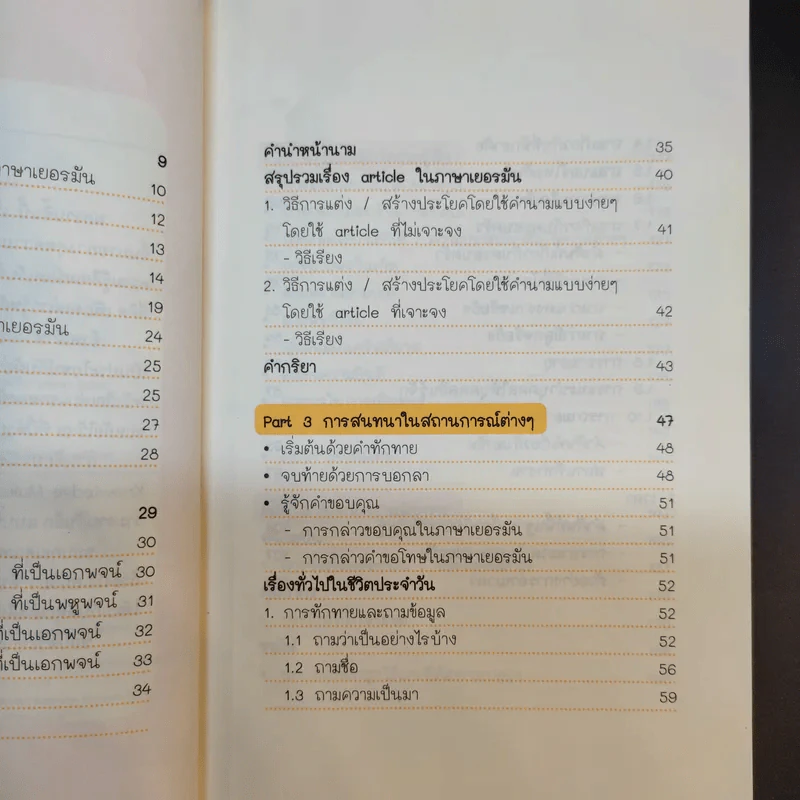 9
ภาษาเยอรมัน 10
12
13
14
19
24
25
25
27
28
29
30
ที่เป็นเอกพจน์ 30
ที่เป็นพหูพจน์ 31
ที่เป็นเอกพจน์ 32
ที่เป็นเอกพจน์ 33
34
คำนำหน้านาม 35
สรุปรวมเรื่อง article ในภาษาเยอรมัน 40
1. วิธีการแต่ง / สร้างประโยคโดยใช้คำนามแบบง่ายๆ
โดยใช้ article ที่ไม่เจาะจง 41
- วิธีเรียง
2. วิธีการแต่ง / สร้างประโยคโดยใช้คำนามแบบง่ายๆ
โดยใช้ article ที่เจาะจง 42
- วิธีเรียง
คำกริยา 43
Part 3 การสนทนาในสถานการณ์ต่างๆ 47
• เริ่มต้นด้วยคำทักทาย 48
• จบท้ายด้วยการบอกลา 48
• รู้จักคำขอบคุณ 51
- การกล่าวขอบคุณในภาษาเยอรมัน 51
- การกล่าวคำขอโทษในภาษาเยอรมัน 51
เรื่องทั่วไปในชีวิตประจำวัน 52
1. การทักทายและถามข้อมูล 52
1.1 ถามว่าเป็นอย่างไรบ้าง 52
1.2 ถามชื่อ 56
1.3 ถามความเป็นมา 59